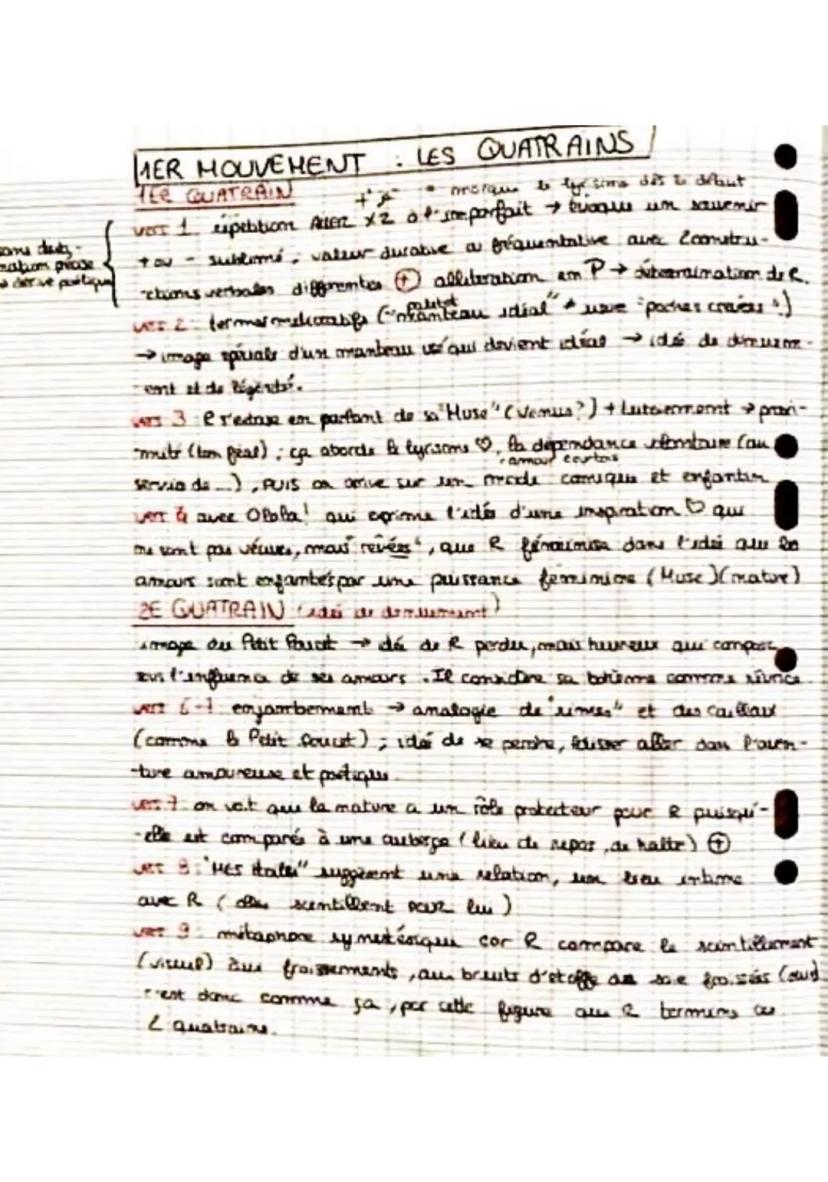 1ER MOUVEMENT : LES QUATRAINS
1ER QUATRAIN
+ "je" = marque le lyrisme dès le début
vers 1 répétition ALLER X2 à l'imparfait → évoque un souvenir
sans desti-
nation précise
→ dérive poétique
+ ou - sublimé, valeur durative ou fréquentative avec 2 constru-
-ctions verbales différentes ⊕ allitération en P → détermination de R.
vers 2 : termes mélioratifs ("manteau idéal" + usé "poches crevées")
paletot
→ image spéciale d'un manteau usé qui devient idéal → idée de dénuem-
-ent et de légèreté.
vers 3 : R s'extase en parlant de sa "Muse" (Venus?) + tutoiement → proxi-
-mité (ton féal) ; ça aborde le lyrisme ♡, la dépendance volontaire (au
: amour courtois
service de ...), PUIS on dérive sur un mode comique et enfantin
vers 4 avec Olala! qui exprime l'idée d'une inspiration ♡ qui
ne sont pas vécues, mais "rêvées", que R féminise dans l'idée que les
amours sont enfantés par une puissance féminine (Muse)(nature)
2E QUATRAIN (idée de dénuement)
image du Petit Poucet → idée de R perdu, mais heureux qui compose
sous l'influence de ses amours. Il considère sa bohème comme
vers 6-7 enjambement → analogie de "rimes" et des cailloux
(comme le Petit Poucet) ; idée de se perdre, laisser aller dans l'aven-
-ture amoureuse et poétique.
vers 7 : on voit que la nature a un rôle protecteur pour R puisqu'-
-elle est comparée à une auberge (lieu de repos, de halte) ⊕
vers 8 : "Mes étoiles" suggèrent une relation, un lien intime
avec R (elles scintillent pour lui)
vers 9 : métaphore synestésique car R compare le scintillement
(visuel) aux froissements, aux bruits d'étoffe de soie froissés
c'est donc comme ça, par cette figure que R termine ces
2 quatrains.